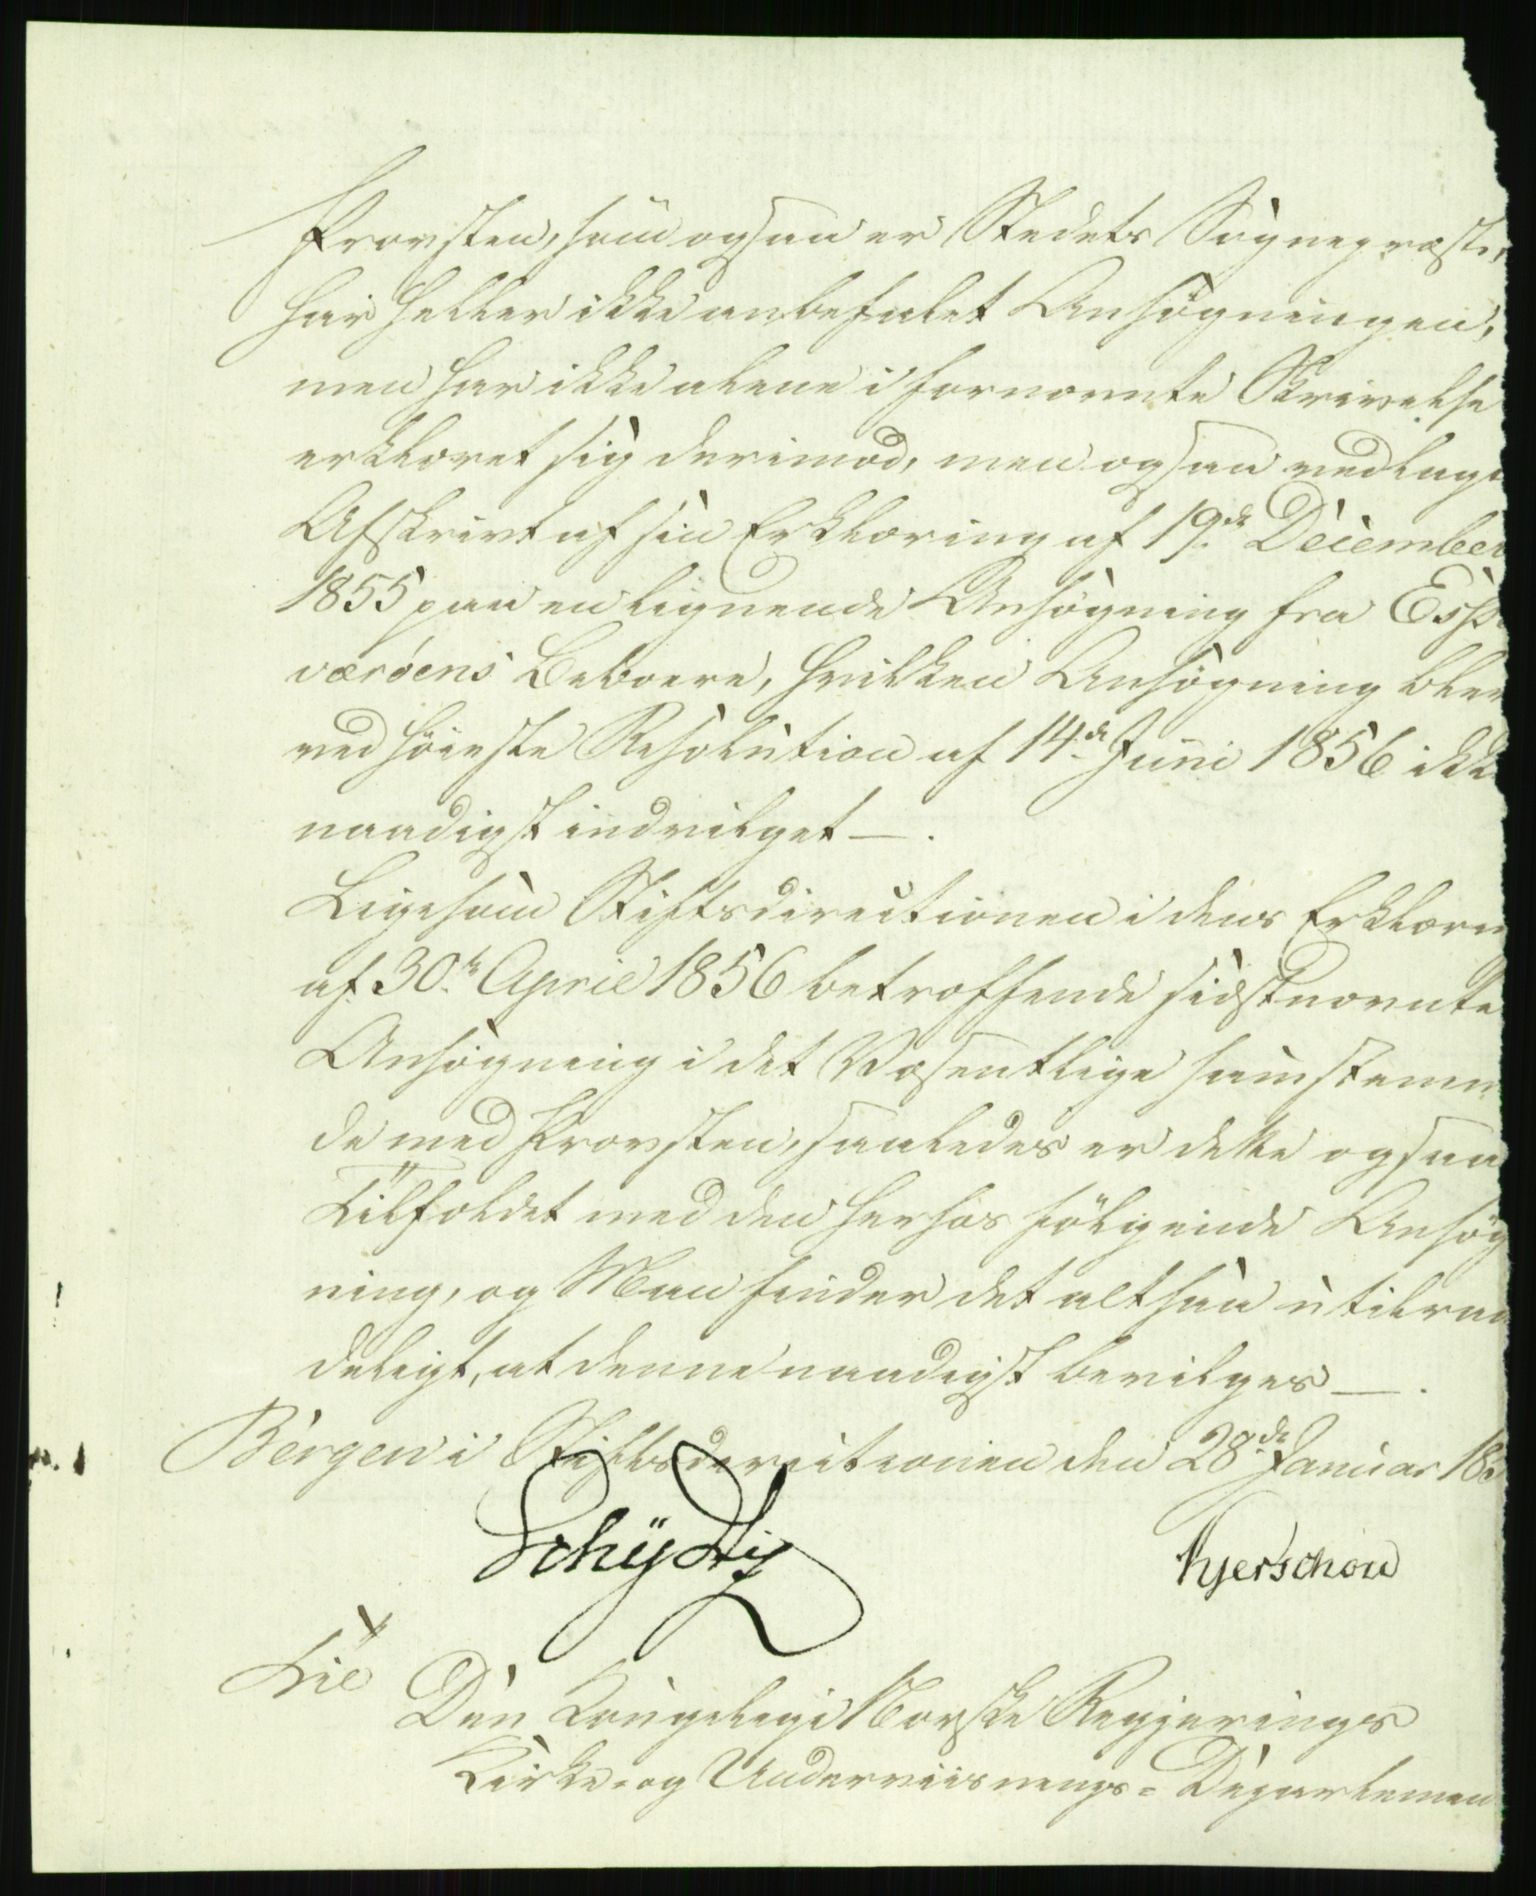 Provsten, som ogsaa er Stedets Sognepræst,
har heller ikke anbefalet Ansøgningen,
men har ikke alene i fornævnte Skrivelse
erklæret sig derimod, men ogsaa vedlagt
Afskrivt af sin Erklæring af 19de December
1855 paa en lignende Ansøgning fra Espe
værøens Beboere, hvilken Ansøgning blev
ved høieste Resolution af 14de Juni 1856 ikke
naadigst indvilget—.
Ligesom Stiftsdirectionen i dens Erklærin
af 30te April 1856 betræffende sidstnævnte
Ansøgning i det Væsentlige samstemme
de med Provsten, saaledes er dette ogsaa
Tilfældet med den herhos følgende Ansøg
ning, og Man finder det altsaa utilraa
deligt, at denne naadigst bevilges—.
Bergen i Stiftsdirectionen den 28de Januar 185
Schydtz
Kjerschow
Til
Den Kongelige Norske Regjerings
Kirke- og Underviisnings=Departemen